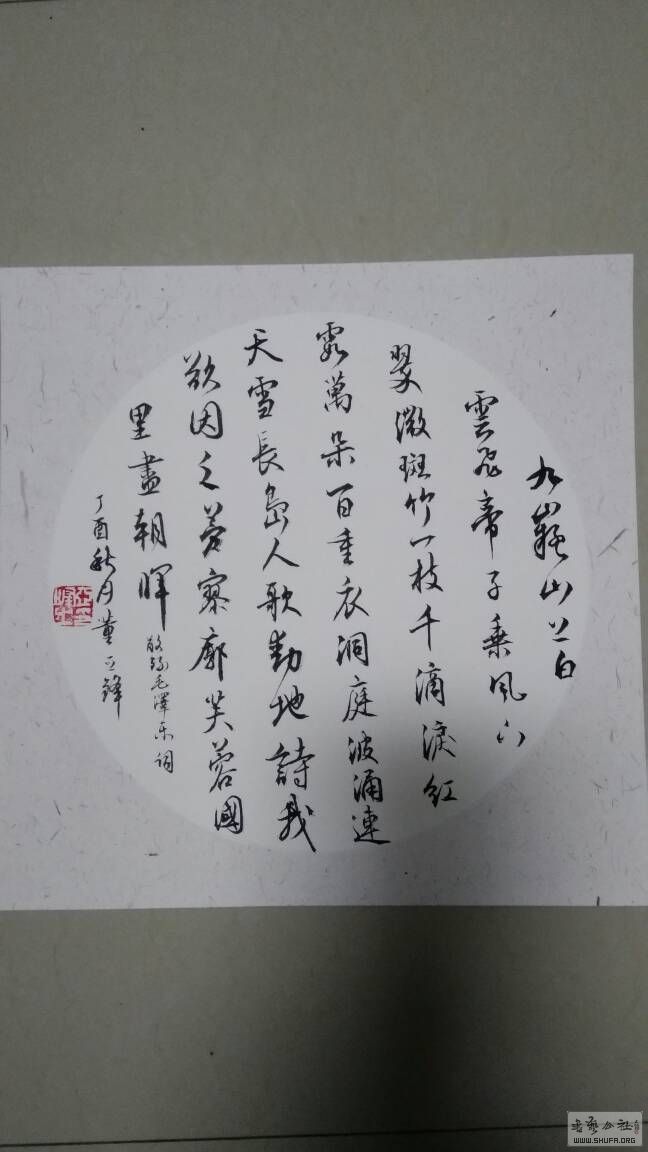 九嶷山上白
雲飛帝子乘風下
翠微斑竹一枝千滴淚紅
霞萬朵百重衣洞庭波涌連
天雪長島人歌動地詩我
欲因之夢寥廓芙蓉國
里盡朝暉
敬録毛澤東詞
丁酉秋月董鋒
书艺公社
WWW.SHUFA.ORG